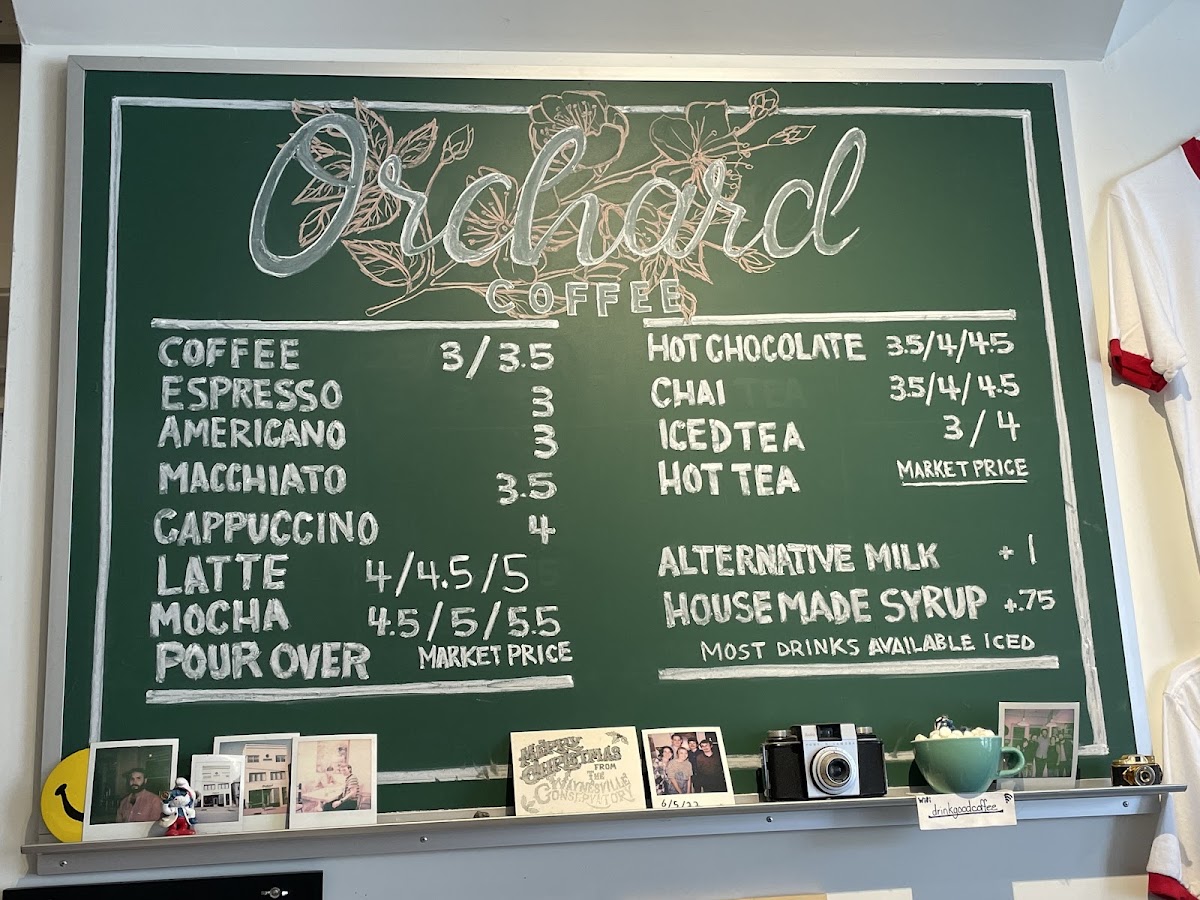 Orchard
COFFEE
COFFEE 3/3.5
ESPRESSO 3
AMERICANO 3
MACCHIATO 3.5
CAPPUCCINO 4
LATTE 4/4.5/5
MOCHA 4.5/5/5.5
POUR OVER MARKET PRICE
HOT CHOCOLATE 3.5/4/4.5
CHAI 3.5/4/4.5
ICED TEA 3/4
HOT TEA MARKET PRICE
ALTERNATIVE MILK +1
HOUSEMADE SYRUP +.75
MOST DRINKS AVAILABLE ICED
HAPPY
CHRISTMAS
FROM
THE
WAYNESVILLE
CONSERVATORY
6/5/22
WIFI
drinkgoodcoffee